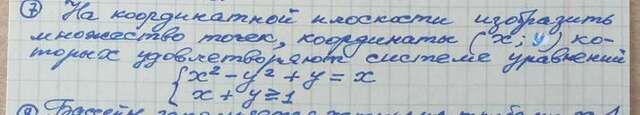 7 На координатной плоскости изобразить
множество точек, координаты (x; y) ко-
торых удовлетворяют системе уравнений
{ x² - y² + y = x
x + y ≥ 1
8 Бассейн